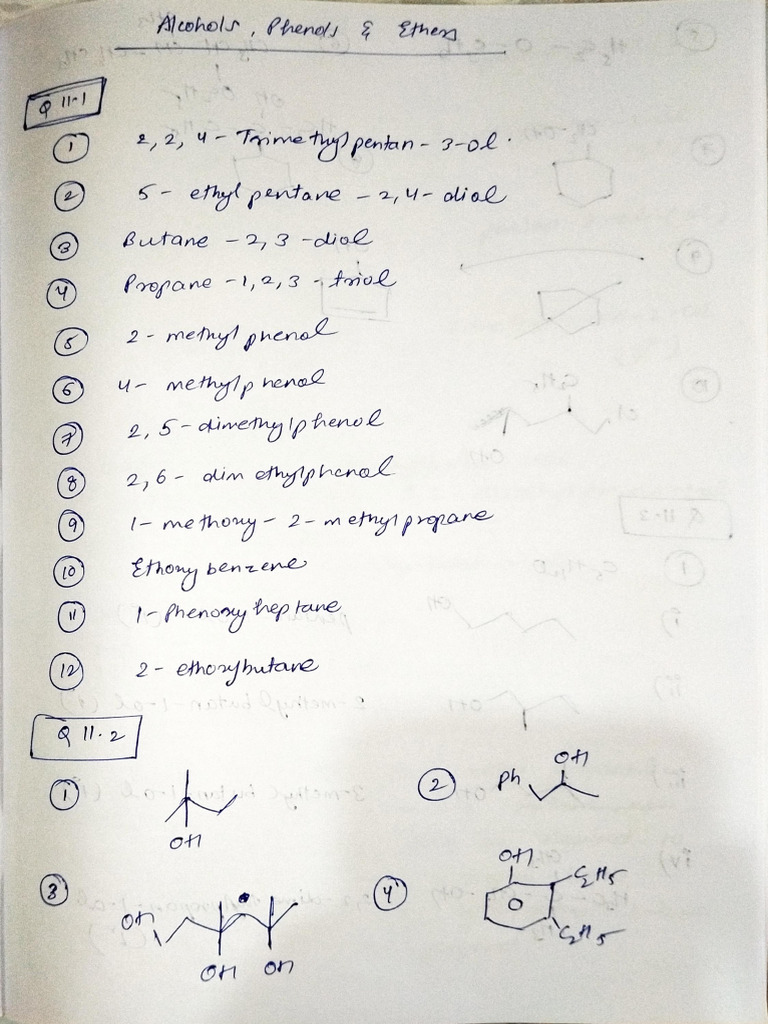 Alcohols, Phenols & Ethers
Q 11.1
1 2, 2, 4 - Trimethylpentan - 3-ol
2 5 - ethyl pentane - 2,4 - diol
3 Butane - 2,3 - diol
4 Propane - 1, 2, 3 - triol
5 2 - methyl phenol
6 4 - methylphenol
7 2, 5 - dimethylphenol
8 2, 6 - dimethylphenol
9 1 - methoxy - 2 - methylpropane
10 Ethoxybenzene
11 1 - Phenoxyheptane
12 2 - ethoxybutane
Q 11.2
1 OH
2 Ph OH
3 OH OH OH
4 OH C2H5 C2H5